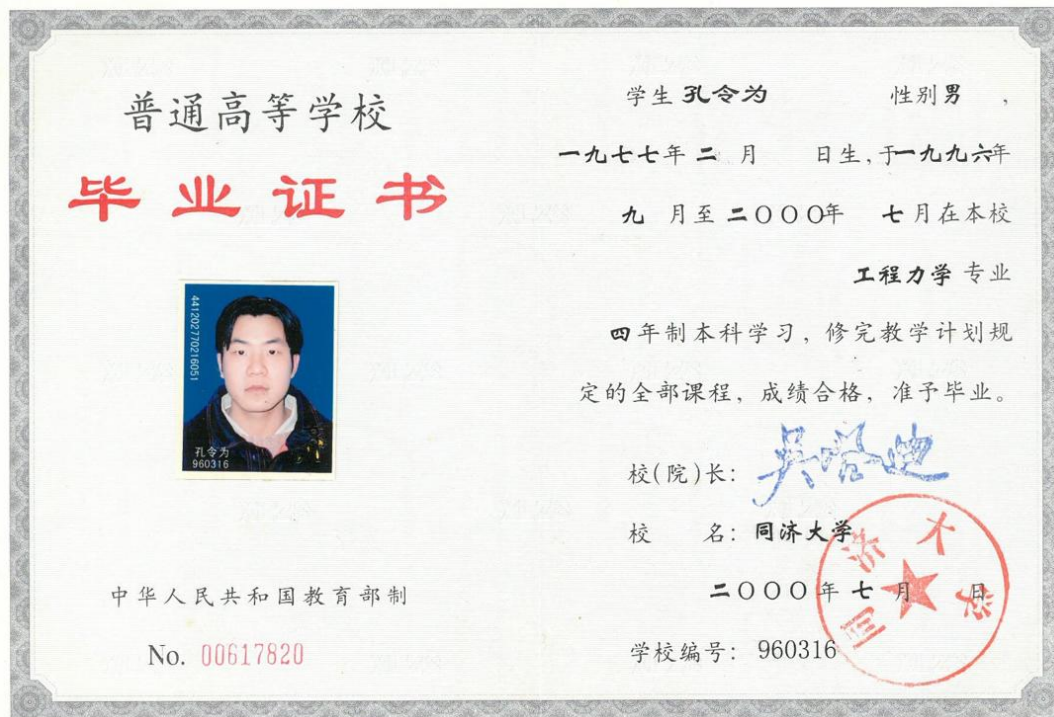 普通高等学校
毕业证书
441202770216051
孔令为
960316
中华人民共和国教育部制
No. 00617820
学生 孔令为 性别 男 ,
一九七七年 二 月 日生, 于一九九六年
九 月至 二〇〇〇年 七月在本校
工程力学 专业
四年制本科学习, 修完教学计划规
定的全部课程, 成绩合格, 准予毕业。
校(院)长: 吴启迪
校 名: 同济大学
二〇〇〇年 七 月 日
学校编号: 960316
同济大学